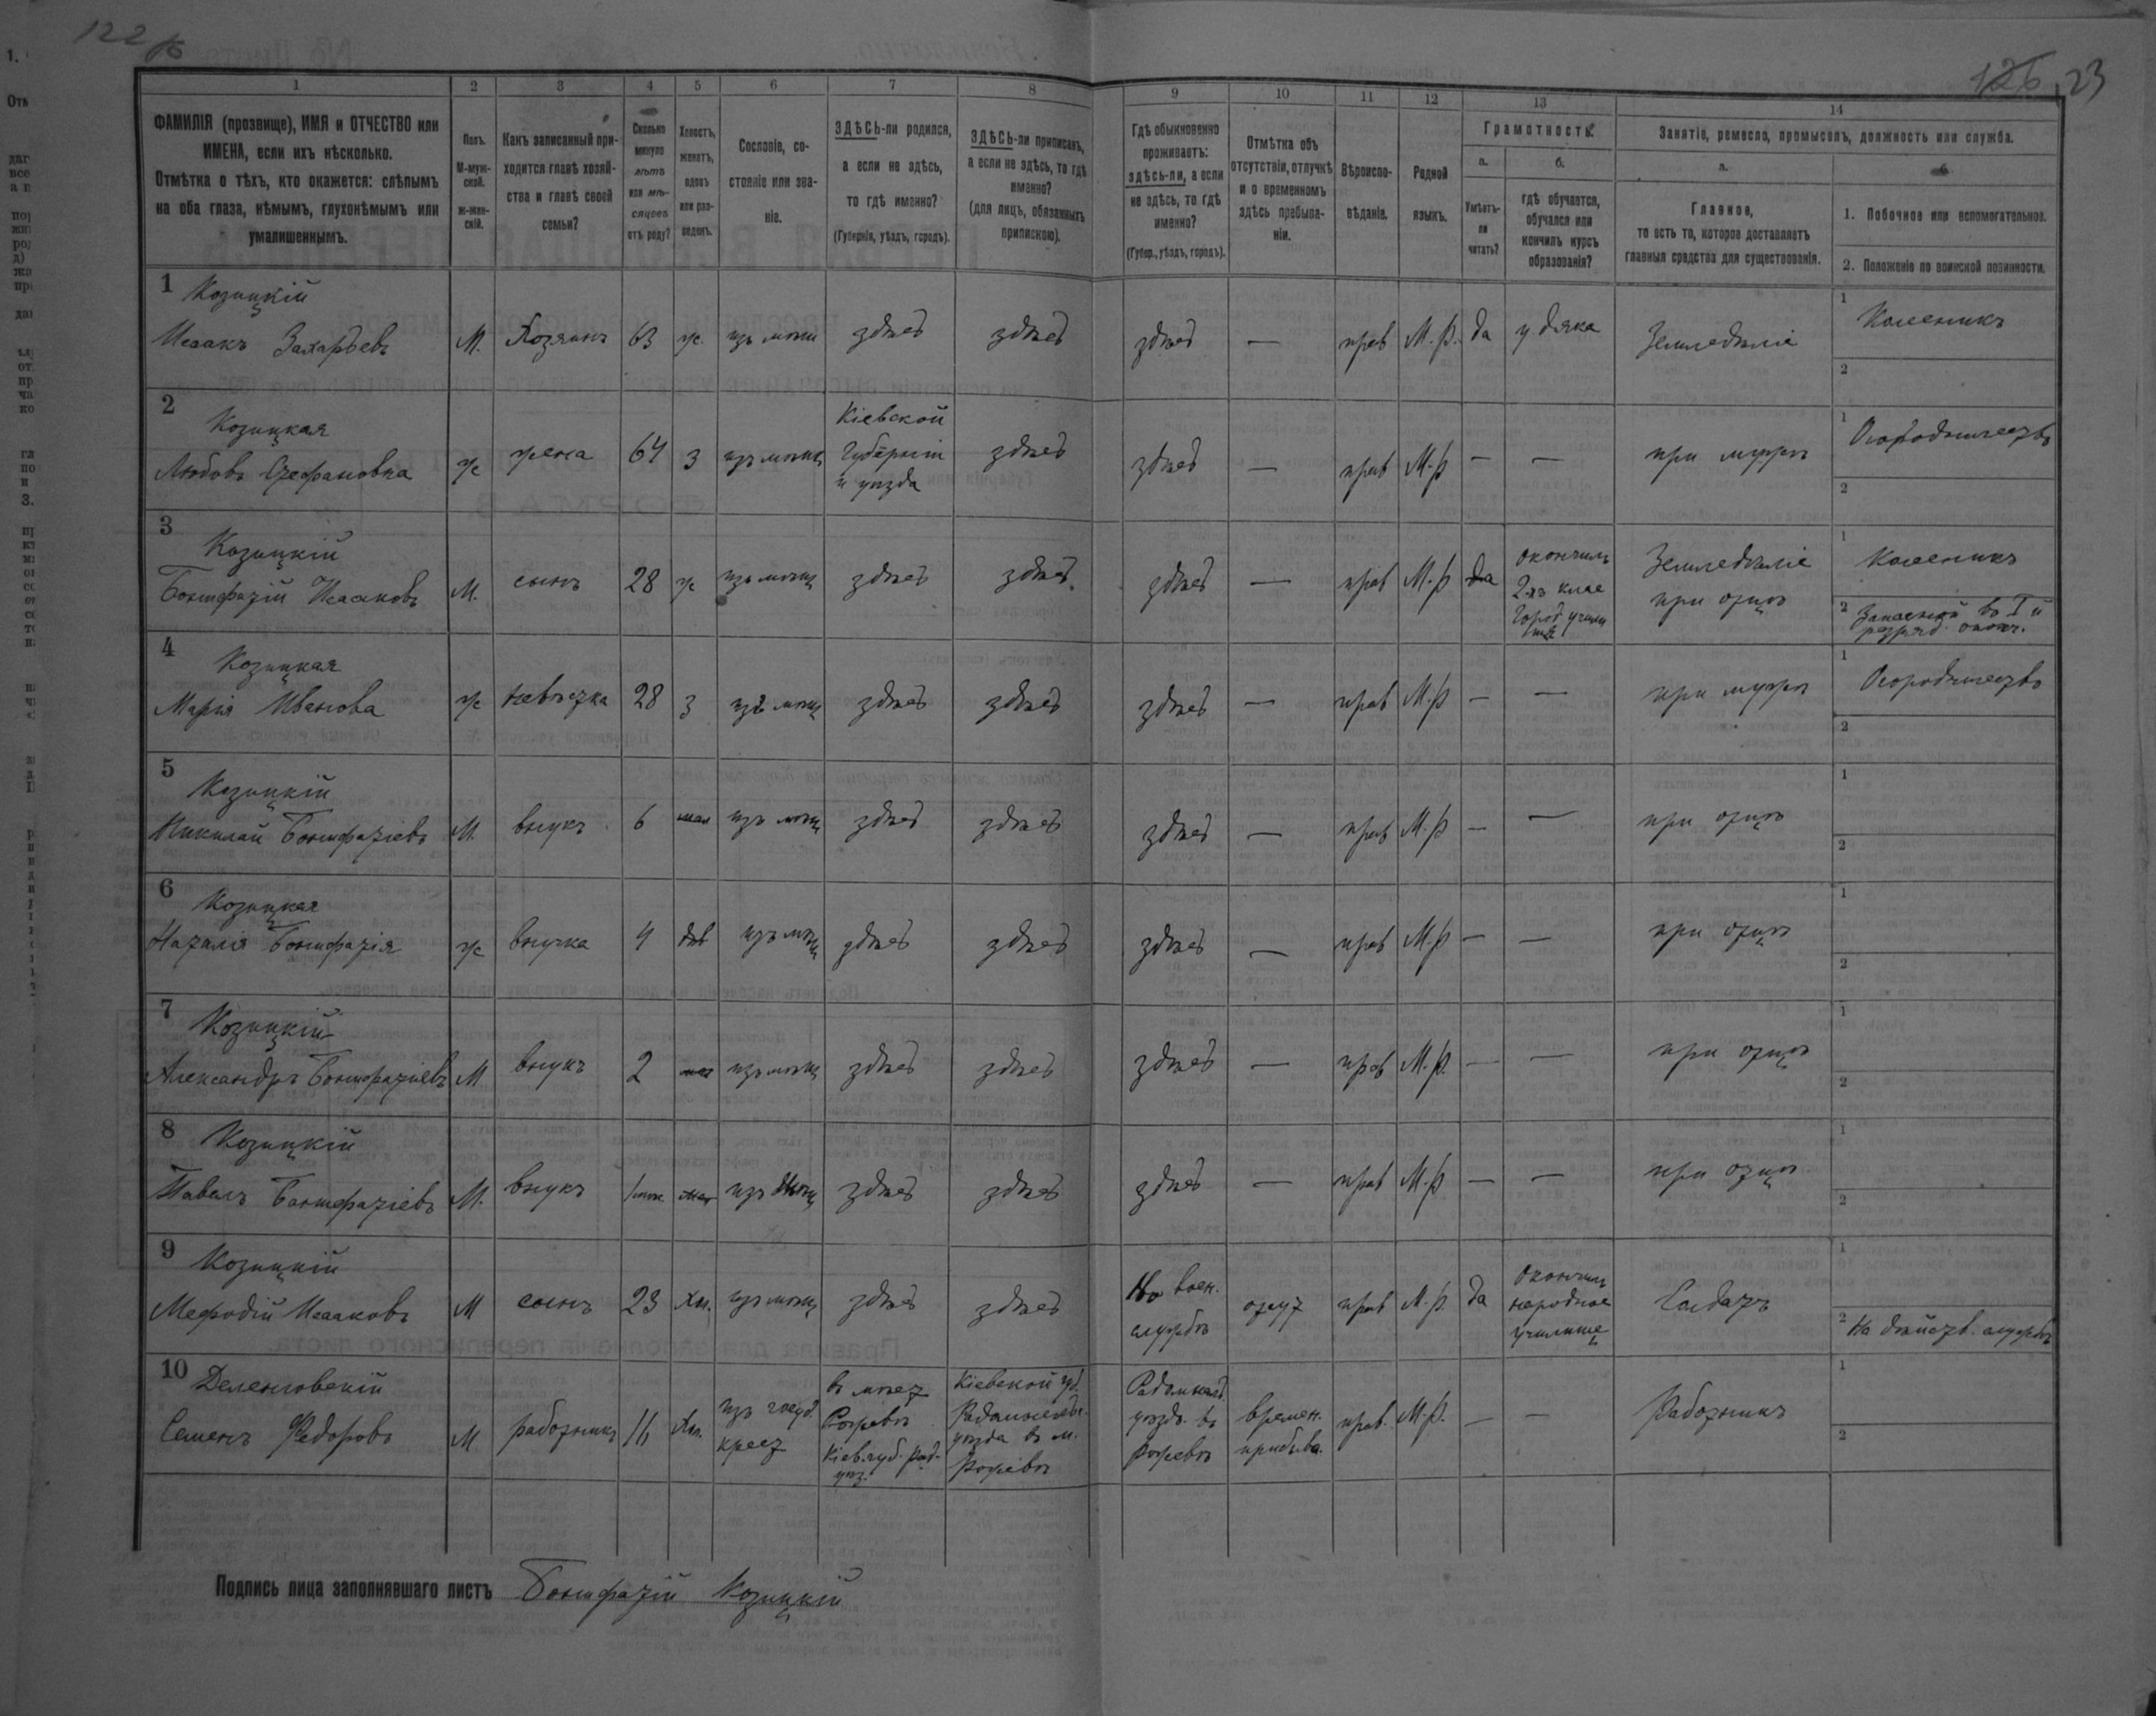 122
126, 23
1
2
3
4
5
6
7
8
9
10
11
12
13
14
ФАМИЛІЯ (прозвище), ИМЯ и ОТЧЕСТВО или
ИМЕНА, если ихъ нѣсколько.
Отмѣтка о тѣхъ, кто окажется: слѣпымъ
на оба глаза, нѣмымъ, глухонѣмымъ или
умалишеннымъ.
Полъ.
М-муж-
ской.
ж-жен-
скій.
Какъ записанный при-
ходится главѣ хозяй-
ства и главѣ своей
семьи?
Сколько
минуло
лѣтъ
или мѣ-
сяцевъ
отъ роду?
Холостъ,
женатъ,
вдовъ
или раз-
веденъ.
Сословіе, со-
стояніе или зва-
ніе.
ЗДѢСЬ-ли родился,
а если не здѣсь,
то гдѣ именно?
(Губернія, уѣздъ, городъ).
ЗДѢСЬ-ли приписанъ,
а если не здѣсь, то гдѣ
именно?
(для лицъ, обязанныхъ
припискою).
Гдѣ обыкновенно
проживаетъ:
здѣсь-ли, а если
не здѣсь, то гдѣ
именно?
(Губер., уѣздъ, городъ).
Отмѣтка объ
отсутствіи, отлучкѣ
и о временномъ
здѣсь пребыва-
ніи.
Вѣроиспо-
вѣданіе.
Родной
языкъ.
Грамотность.
а.
Умѣетъ-
ли
читать?
б.
гдѣ обучается,
обучался или
кончилъ курсъ
образованія?
Занятіе, ремесло, промыселъ, должность или служба.
а.
Главное,
то есть то, которое доставляетъ
главныя средства для существованія.
б.
1. Побочное или вспомогательное.
2. Положеніе по воинской повинности.
1 Козицкій
Исаакъ Захарьевъ М. Хозяинъ 63 ж. изъ мѣщ здѣсь здѣсь здѣсь — прав М.р. да у дяка Земледѣліе 1 Колесникъ
2
2 Козицкая
Любовь Стефановна ж жена 64 з изъ мѣщ Кіевской
Губерніи
и уѣзда здѣсь здѣсь — прав М.р — — при мужѣ 1 Огородничество
2
3 Козицкій
Бонифатій Исааковъ М. сынъ 28 ж изъ мѣщ здѣсь здѣсь здѣсь — прав М.р да окончилъ
2-хъ клас
Город учили
ще Земледѣліе
при отцѣ 1 Колесникъ
2 Запасной во I й
разряд.
4 Козицкая
Марія Иванова ж невѣстка 28 з изъ мѣщ здѣсь здѣсь здѣсь — прав М.р — — при мужѣ 1 Огородничество
2
5 Козицкій
Николай Бонифатіевъ М. внукъ 6 мал изъ мѣщ здѣсь здѣсь здѣсь — прав М.р — — при отцѣ 1
2
6 Козицкая
Наталія Бонифатія ж внучка 4 дѣв изъ мѣщ здѣсь здѣсь здѣсь — прав М.р — — при отцѣ 1
2
7 Козицкій
Александръ Бонифатіевъ М внукъ 2 мал изъ мѣщ здѣсь здѣсь здѣсь — прав М.р. — — при отцѣ 1
2
8 Козицкій
Павелъ Бонифатіевъ М. внукъ изъ мѣщ здѣсь здѣсь здѣсь — прав М.р — — при отцѣ 1
2
9 Козицкій
Мефодій Исааковъ М сынъ 23 Хол. изъ мѣщ здѣсь здѣсь На воен.
службѣ отсут прав М.р. да Окончилъ
народное
училище Солдатъ 1
2 На дѣйств. службѣ
10
Семенъ Федоровъ М. работникъ 16 Хол. изъ госуд.
крест в мѣст
Рожевѣ
Кіев. губ. Рад-
уѣз. Кіевской губ.
Радомысльск.
уѣзда в м.
Рожевѣ Радомысл.
уѣзд. в
Рожевѣ времен.
пребыва. прав. М.р. — — Работникъ 1
2
Подпись лица заполнявшаго листъ Бонифатій Козицкій